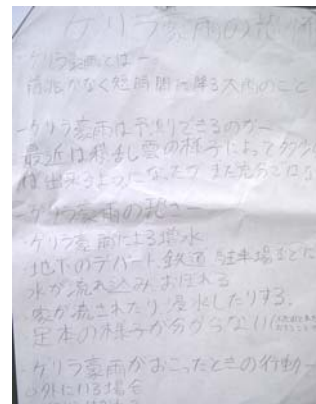 ゲリラ豪雨の恐怖
ーゲリラ豪雨とはー
前兆がなく短時間に降る大雨のこと
ーゲリラ豪雨は予測できるのかー
最近は積乱雲の様子によって多少
は出来るようになったが まだ充分ではな
ーゲリラ豪雨の恐さー
・ゲリラ豪雨による増水
・地下のデパート、鉄道、駐車場などに
水が流れ込み、おぼれる
・家が流されたり、浸水したりする。
・足本の様子が分からない
ーゲリラ豪雨がおこったときの行動ー
○外にいる場合